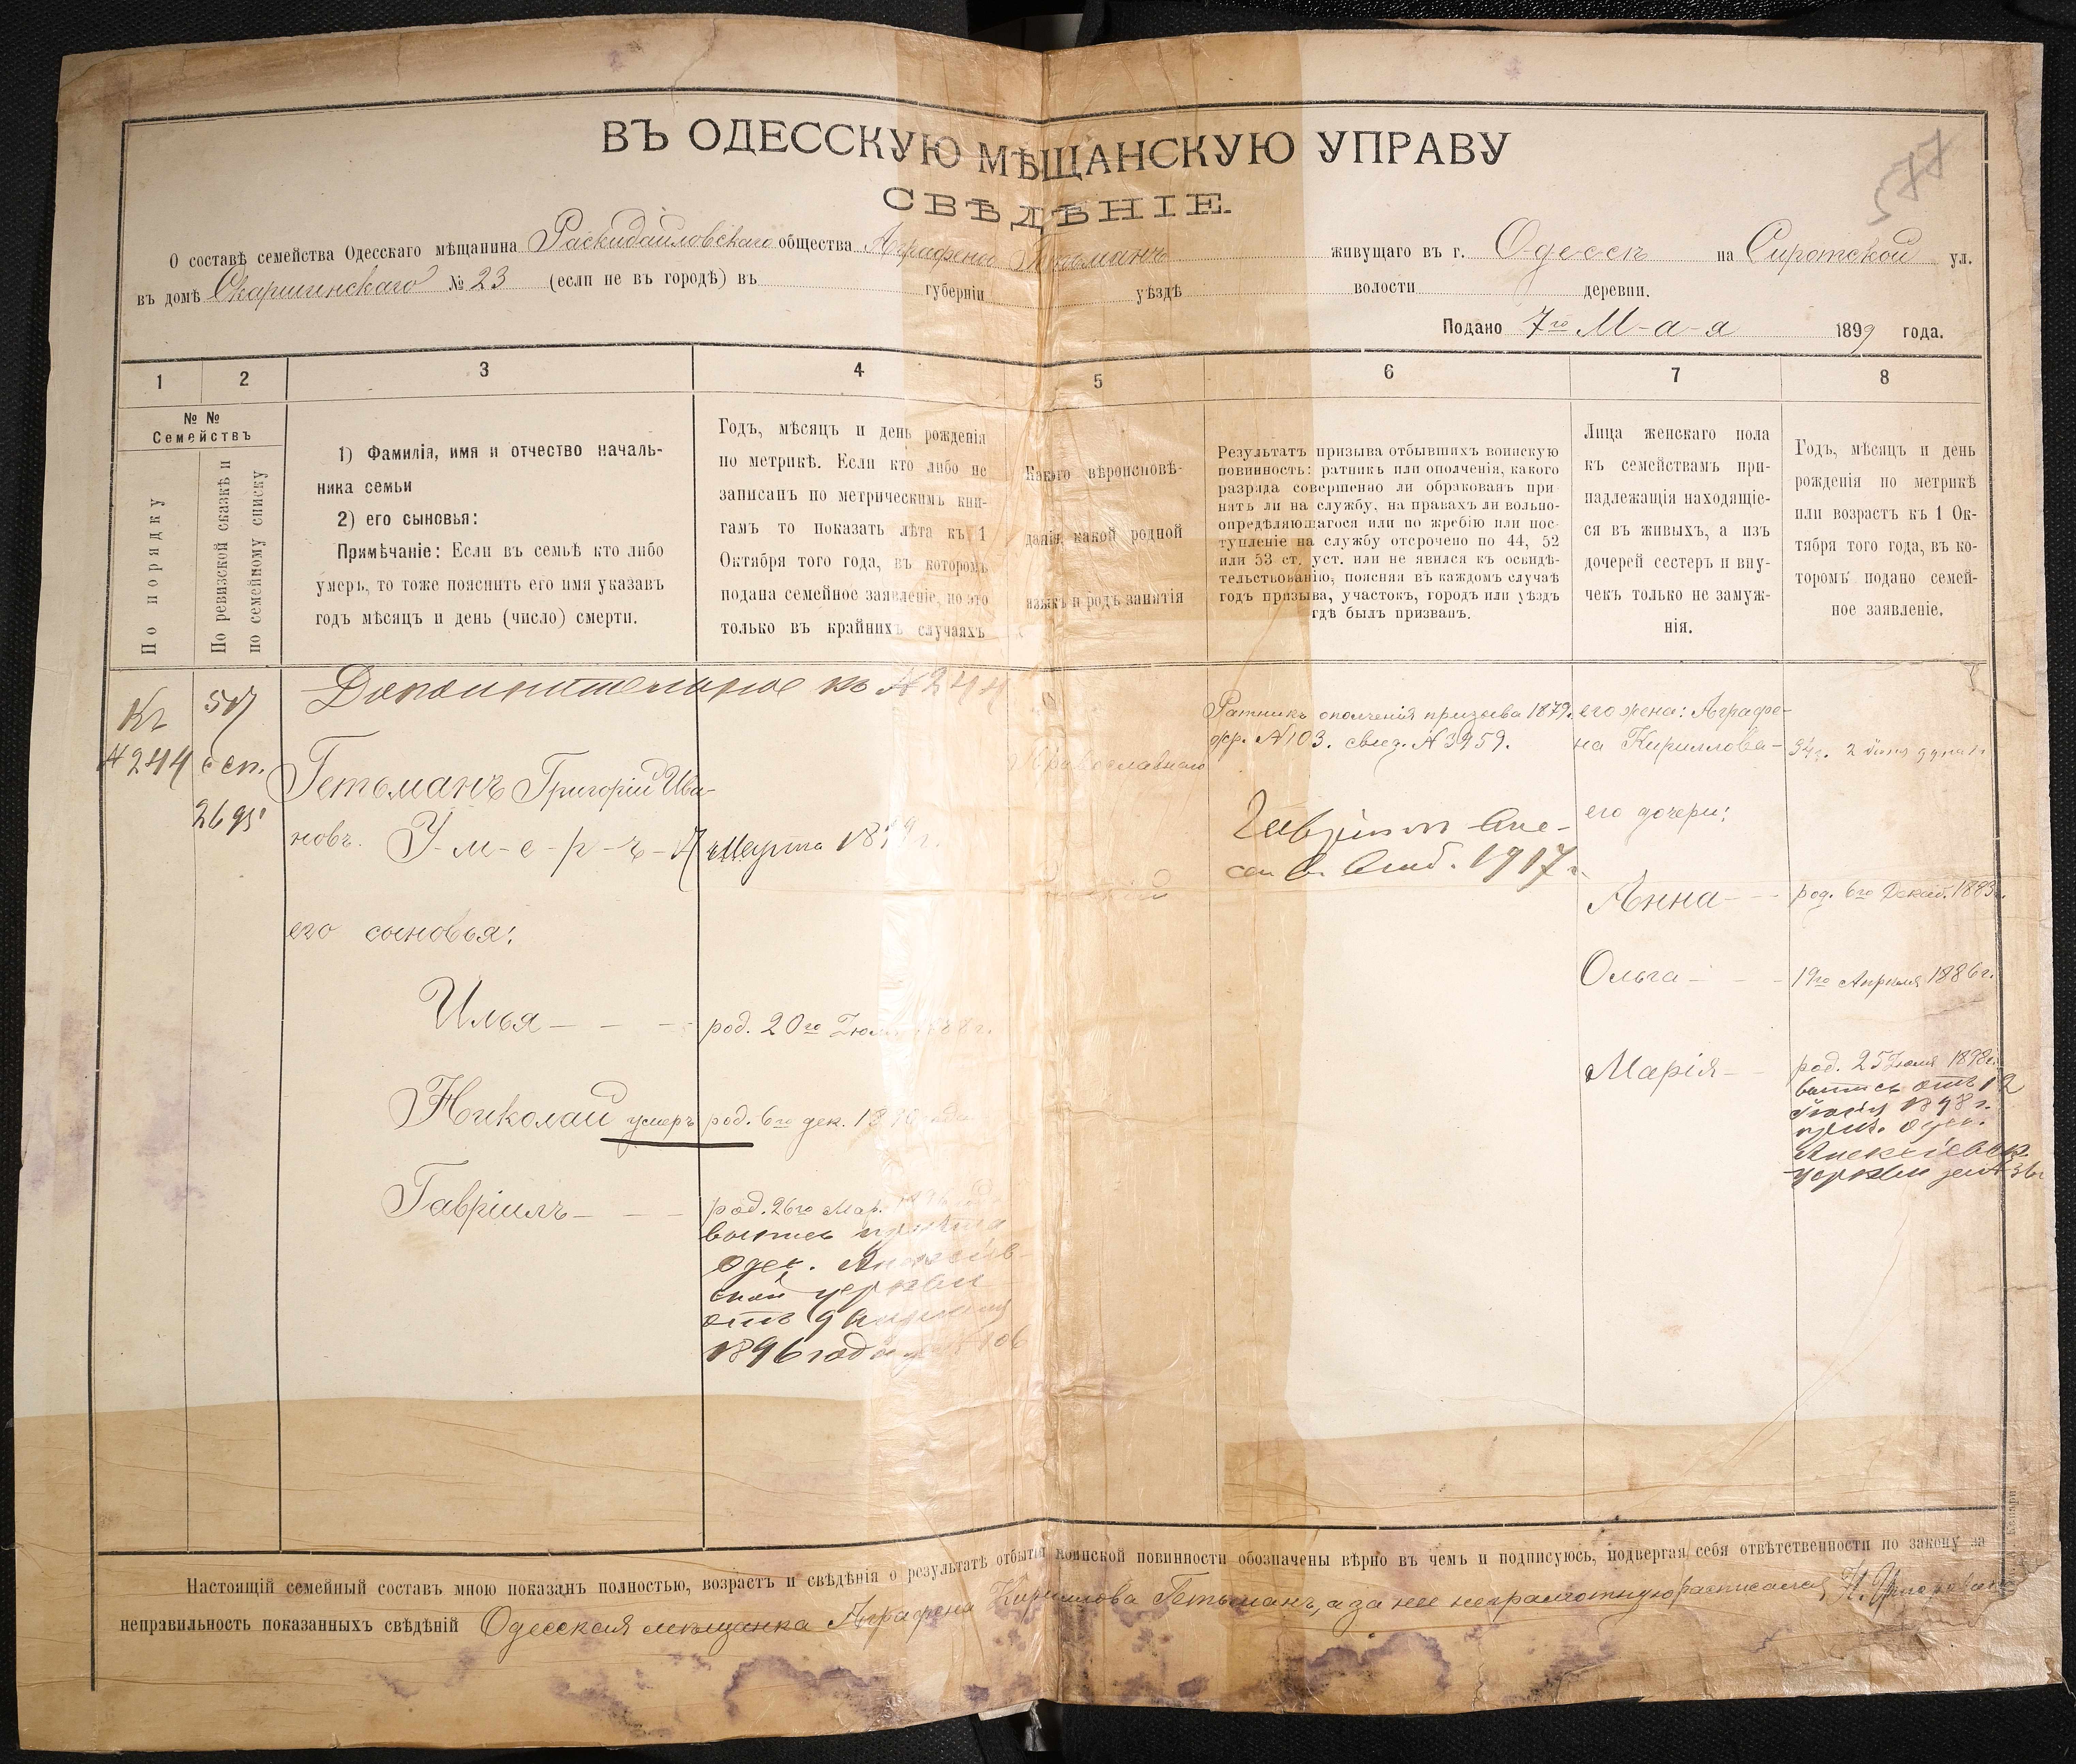 577
ВЪ ОДЕССКУЮ МѢЩАНСКУЮ УПРАВУ
СВѢДѢНІЕ.
О составѣ семейства Одесскаго мѣщанина Раскидайловскаго общества Аграфены Гетьманъ живущаго въ г. Одессѣ на Сиротской ул.
въ домѣ Скаржинскаго № 23 (если не въ городѣ) въ губерніи уѣздѣ волости деревни.
Подано 7го М-а-я 1899 года.
1 2 3 4 5 6 7 8
№ №
Семействъ
По порядку
По ревизской сказкѣ и
по семейному списку
1) Фамилія, имя и отчество началь-
ника семьи
2) его сыновья:
Примѣчаніе: Если въ семьѣ кто либо
умеръ, то тоже пояснить его имя указавъ
годъ мѣсяцъ и день (число) смерти.
Годъ, мѣсяцъ и день рожденія
по метрикѣ. Если кто либо не
записанъ по метрическимъ кни-
гамъ то показать лѣта къ 1
Октября того года, въ которомъ
подана семейное заявленіе, но это
только въ крайнихъ случаяхъ
Какого вѣроисповѣ-
данія, какой родной
языкъ и родъ занятія
Результатъ призыва отбывшихъ воинскую
повинность: ратникъ или ополченія, какого
разряда совершенно ли обракованъ при-
нятъ ли на службу, на правахъ ли вольно-
опредѣляющагося или по жребію или пос-
тупленіе на службу отсрочено по 44, 52
или 53 ст. уст. или не явился къ освидѣ-
тельствованію, поясняя въ каждомъ случаѣ
годъ призыва, участокъ, городъ или уѣздъ
гдѣ былъ призванъ.
Лица женскаго пола
къ семействамъ при-
надлежащія находящіе-
ся въ живыхъ, а изъ
дочерей сестеръ и вну-
чекъ только не замуж-
нія.
Годъ, мѣсяцъ и день
рожденія по метрикѣ
или возрастъ къ 1 Ок-
тября того года, въ ко-
торомъ подано семей-
ное заявленіе.
Къ
№244
507
сп.
2695
Дополнительное къ №244
Гетьманъ Григорій Ива-
новъ. У-м-е-р-ъ - 7 Марта 18
его сыновья:
Илья - - - род. 20го 88 г.
Николай умеръ род. 6го дек. 18
Гавріилъ - - - род. 26го Мар.
Одес.
ской церкви
отъ 9
1896 года 106
Православнаго
Ратникъ ополченія призыва 1879г.
№103. свид. №3959.
Гавріилъ
1917 г.
его жена: Аграфе-
на Кириллова - 34г.
его дочери:
Анна - - род. 6го Декаб. 1883г.
Ольга - - - 19го Апрѣля 1886г.
Марія - - род. 25 Іюля 1898г.
отъ 12
1898 г.
Алексіевск.
церкви
Настоящій семейный составъ мною показанъ полностью, возрастъ и свѣдѣнія о результатѣ отбытія воинской повинности обозначены вѣрно въ чемъ и подписуюсь, подвергая себя отвѣтственности по закону за
неправильность показанныхъ свѣдѣній Одесская мѣщанка Аграфена Кириллова Гетьманъ, а за нее неграмотную расписался